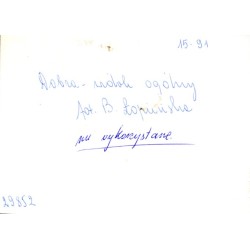 15-91
Dobra - widok ogólny
fot. B. Łopieńska
nie wykorzystane
29852